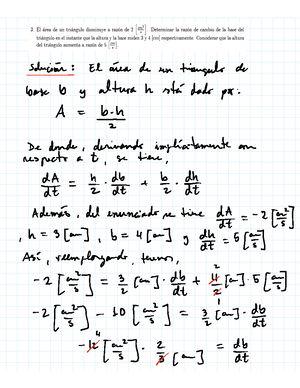 2. El área de un triángulo disminuye a razón de 2 [cm²/s]. Determinar la razón de cambio de la base del
triángulo en el instante que la altura y la base miden 3 y 4 [cm] respectivamente. Considerar que la altura
del triángulo aumenta a razón de 5 [cm/s].
Solución: El área de un triangulo de
base b y altura h está dado por.
A = b·h/2
De donde, derivando implícitamente con
respecto a t, se tiene,
dA/dt = h/2 · db/dt + b/2 · dh/dt
Además, del enunciado se tiene dA/dt = -2 [cm²/s]
, h = 3 [cm], b = 4 [cm] y dh/dt = 5 [cm/s]
Así, reemplazando, tenemos,
-2 [cm²/s] = 3/2 [cm] · db/dt + 4/2 [cm] · 5 [cm/s]
-2 [cm²/s] - 10 [cm²/s] = 3/2 [cm] · db/dt
-12 [cm²/s] · 2/3 [cm] = db/dt